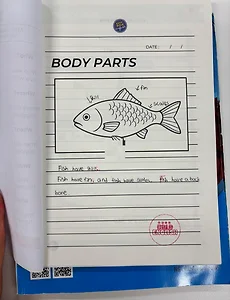 DATE: / /
BODY PARTS
gill
fin
scales
Fish have gills.
Fish have fins, and fish have scales. Fish have a back
bone.